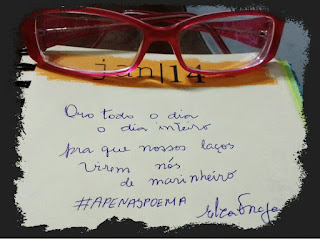 jan|14
Oro todo o dia
o dia inteiro
pra que nossos laços
virem nós
de marinheiro
#APENASPOEMA